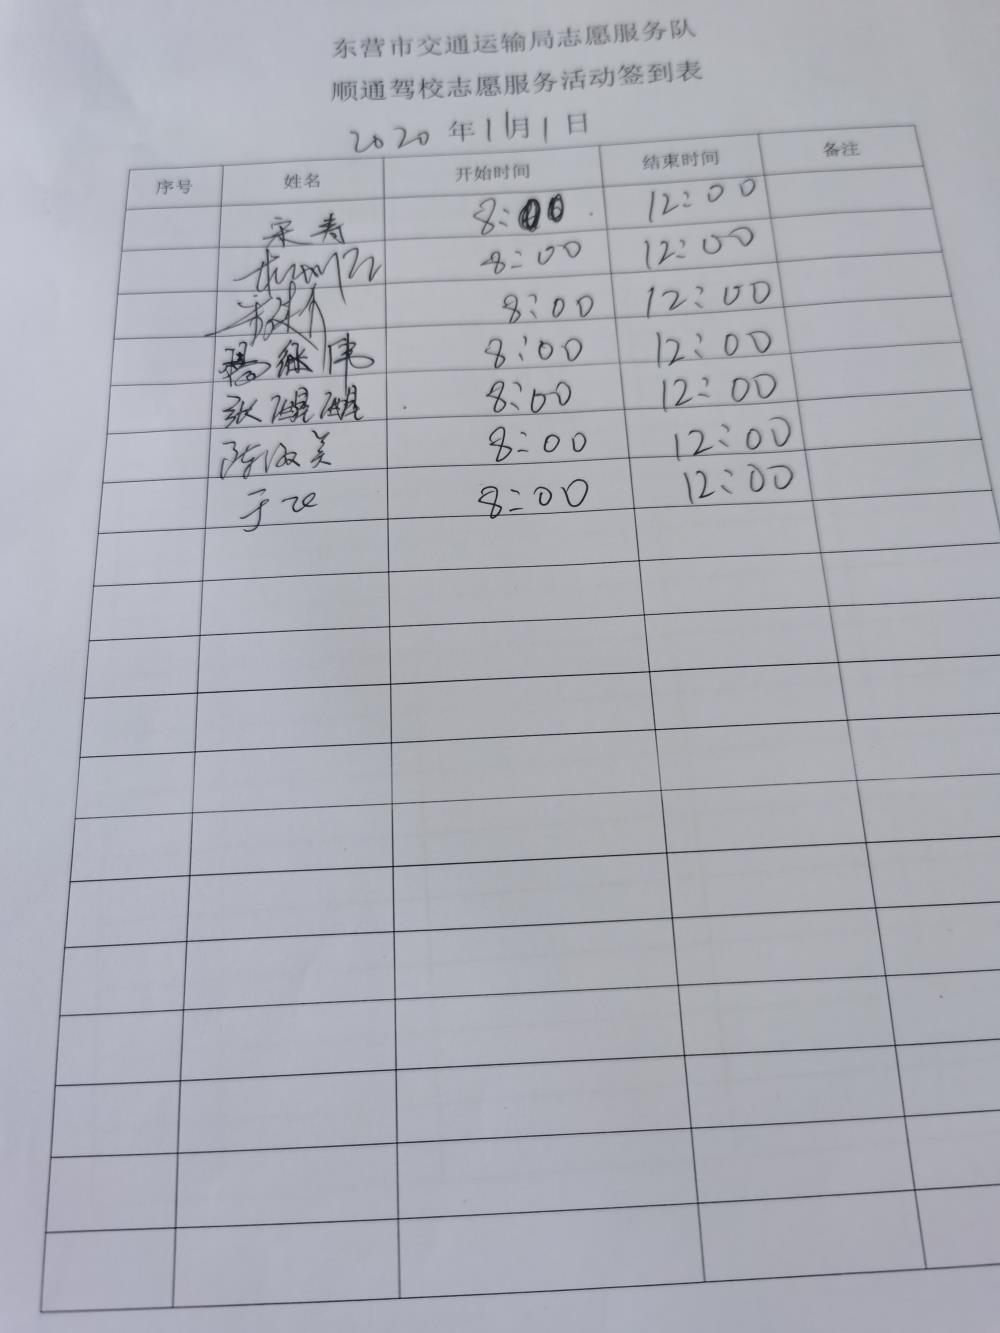 东营市交通运输局志愿服务队
顺通驾校志愿服务活动签到表
2020年11月1日
序号 姓名 开始时间 结束时间 备注
宋寿 8:00 12:00
8:00 12:00
8:00 12:00
杨继伟 8:00 12:00
张醒醒 8:00 12:00
陈淑美 8:00 12:00
于 8:00 12:00